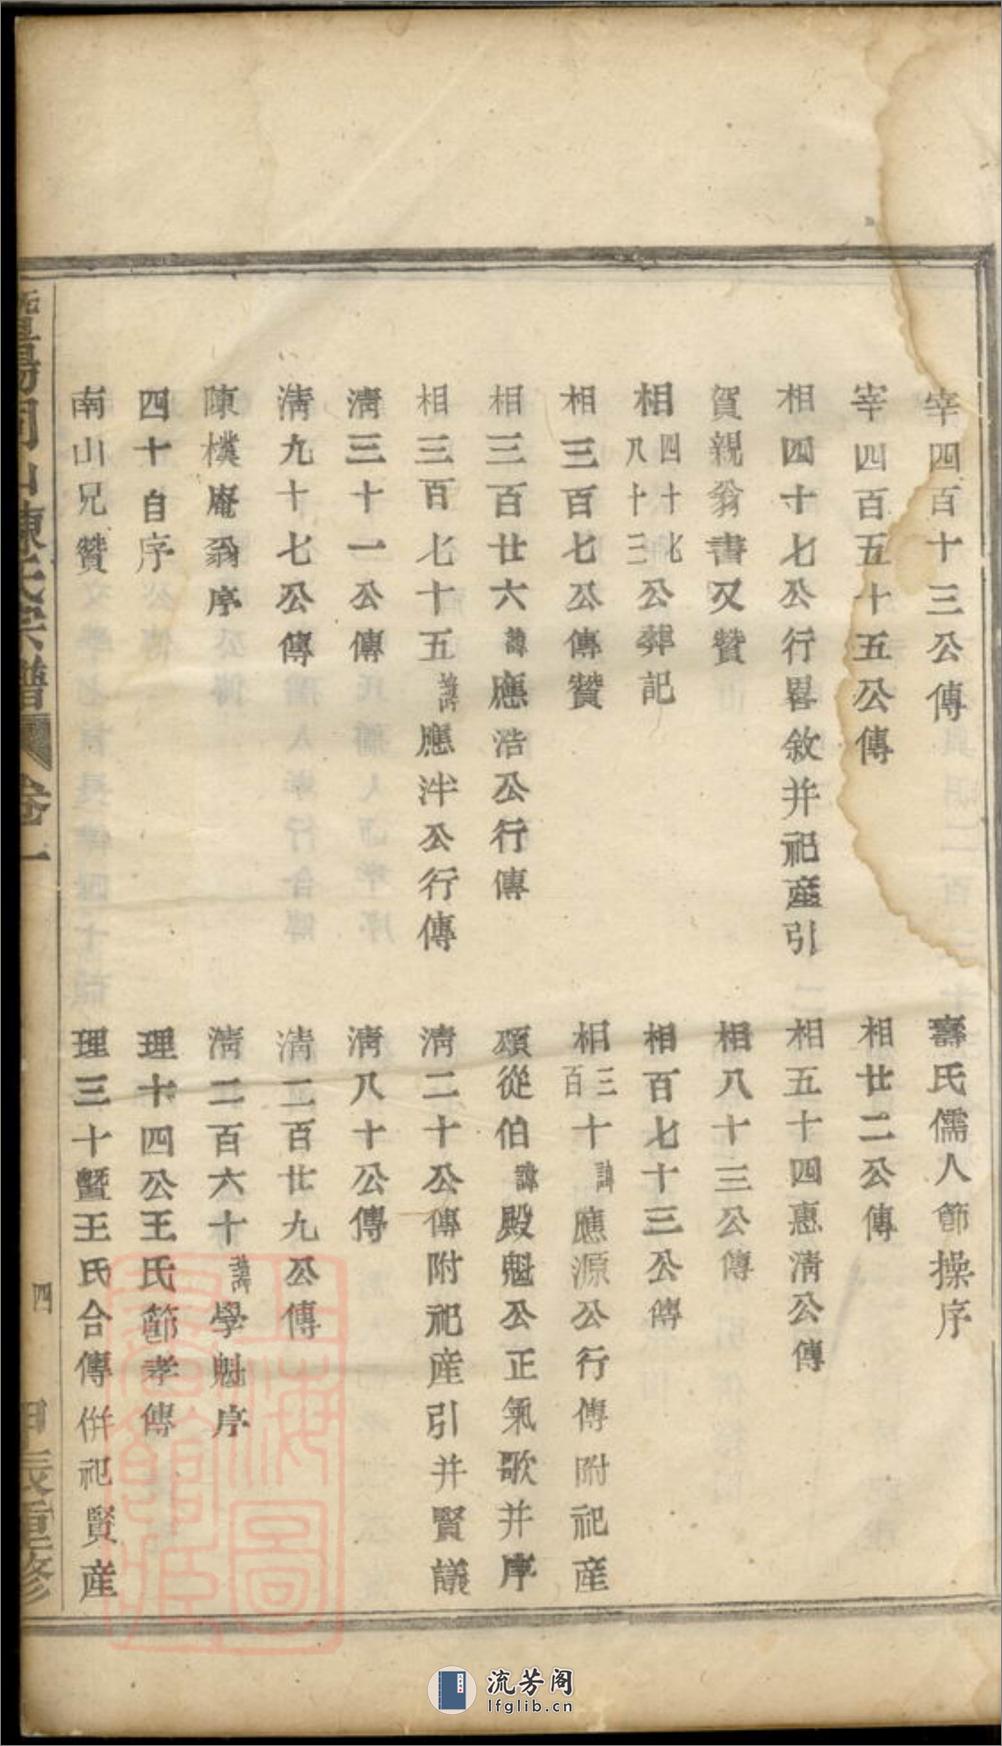 宰四百十三公傳
壽氏儒人節操序
宰四百五十五公傳
相廿二公傳
相四十七公行畧敘并祀產引
相五十四惠淸公傳
賀親翁書又贊
相八十三公傳
相四十七八十三公葬記
相百七十三公傳
相三百七公傳贊
相三百十諱應源公行傳附祀產
相三百廿六諱應浩公行傳
頌從伯諱殿魁公正氣歌并序
相三百七十五諱應泮公行傳
淸二十公傳附祀產引并賢議
淸三十一公傳
淸八十公傳
淸九十七公傳
淸二百廿九公傳
陳樸庵翁序
淸二百六十諱學魁序
四十自序
理十四公王氏節孝傳
南山兄贊
理三十暨王氏合傳併祀賢產
陳氏宗譜
卷一
四
甲辰重修
流芳阁
lfglib.cn